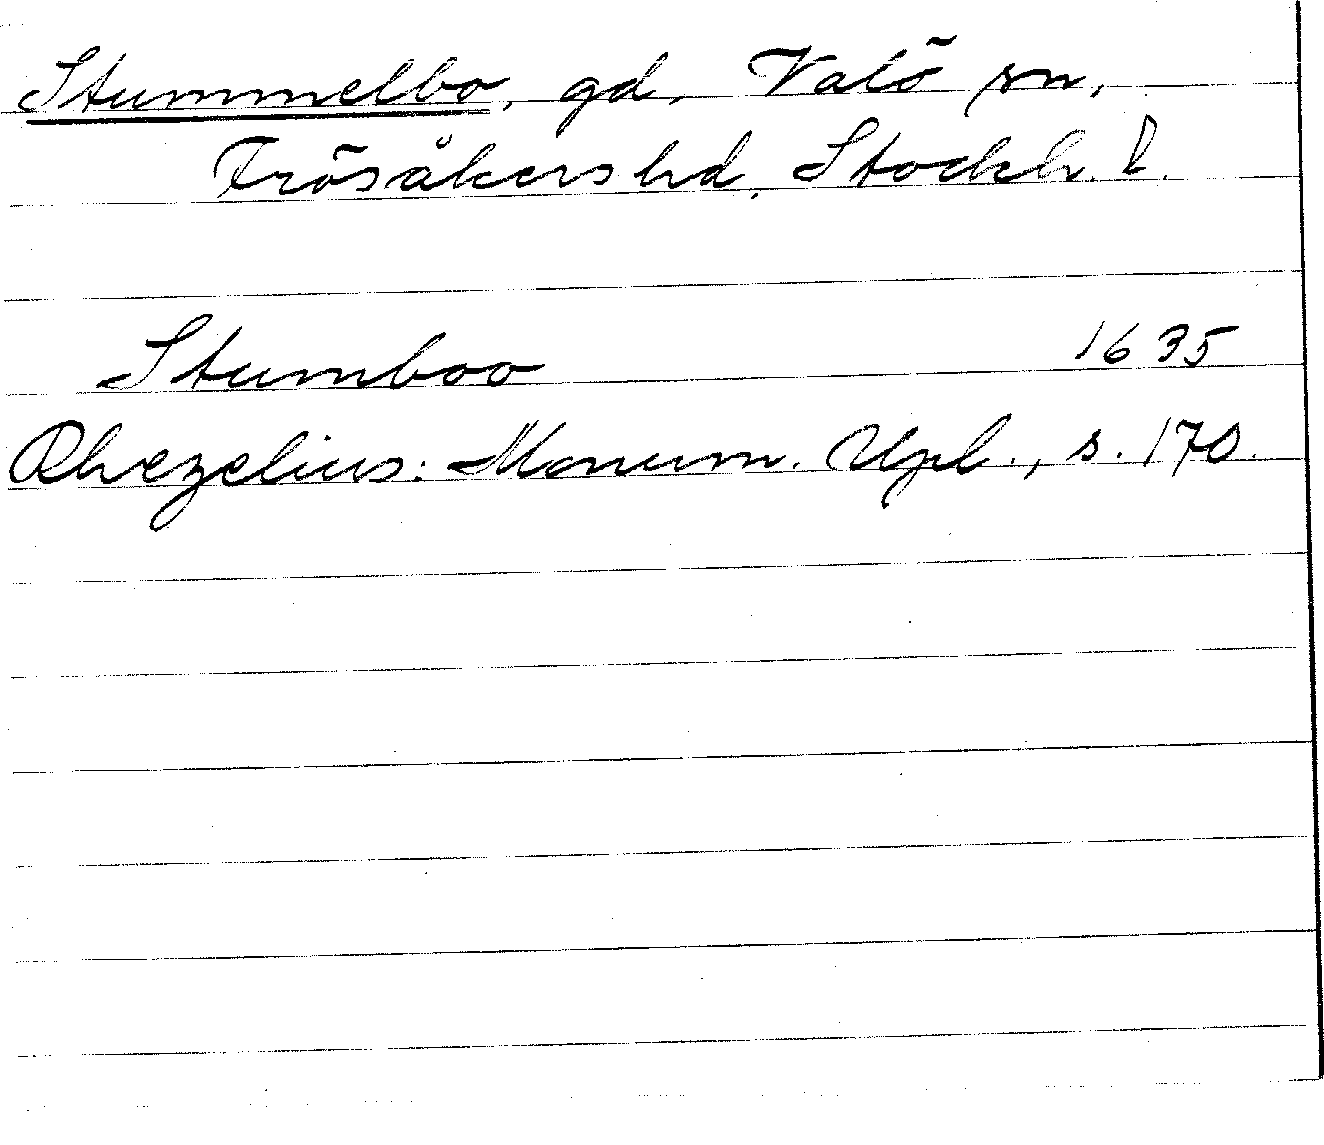 Stummelbo, gd, Valö sn,
Frösåkers hd, Stockh. l.
Stumboo 1635
Rhezelius: Monum. Upl., s. 170.